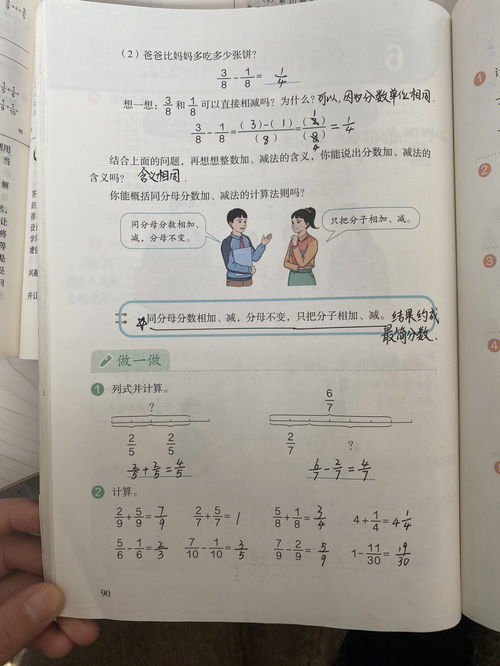 (2) 爸爸比妈妈多吃多少张饼？
3/8 - 1/8 = 1/4
想一想：3/8 和 1/8 可以直接相减吗？为什么？可以，因为分数单位相同.
3/8 - 1/8 = (3)-(1)/(8) = (2)1/(8)4 = 1/4
结合上面的问题，再想想整数加、减法的含义，你能说出分数加、减法的
含义吗？ 含义相同.
你能概括同分母分数加、减法的计算法则吗？
同分母分数相加、
减，分母不变。
只把分子相加、减。
同分母分数相加、减，分母不变，只把分子相加、减。结果约成
最简分数.
做一做
1 列式并计算。
?
2/5 2/5
2/5 + 2/5 = 4/5
6/7
2/7 ?
6/7 - 2/7 = 4/7
2 计算。
2/9 + 5/9 = 7/9 2/7 + 5/7 = 1 5/8 + 1/8 = 3/4 4 + 1/4 = 4 1/4
5/6 - 1/6 = 2/3 7/10 - 1/10 = 3/5 7/9 - 2/9 = 5/9 1 - 11/30 = 19/30
90